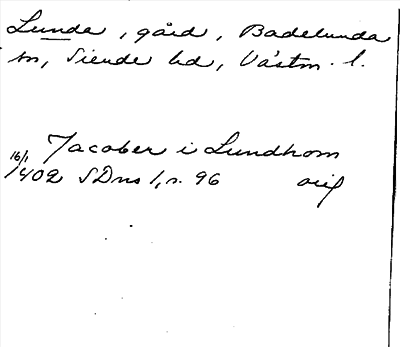 Lunda, gård, Badelunda
sn, Siende hd, Västm. l.
Jacober i Lundhom
16/1
1402 SDns 1, s. 96 orig